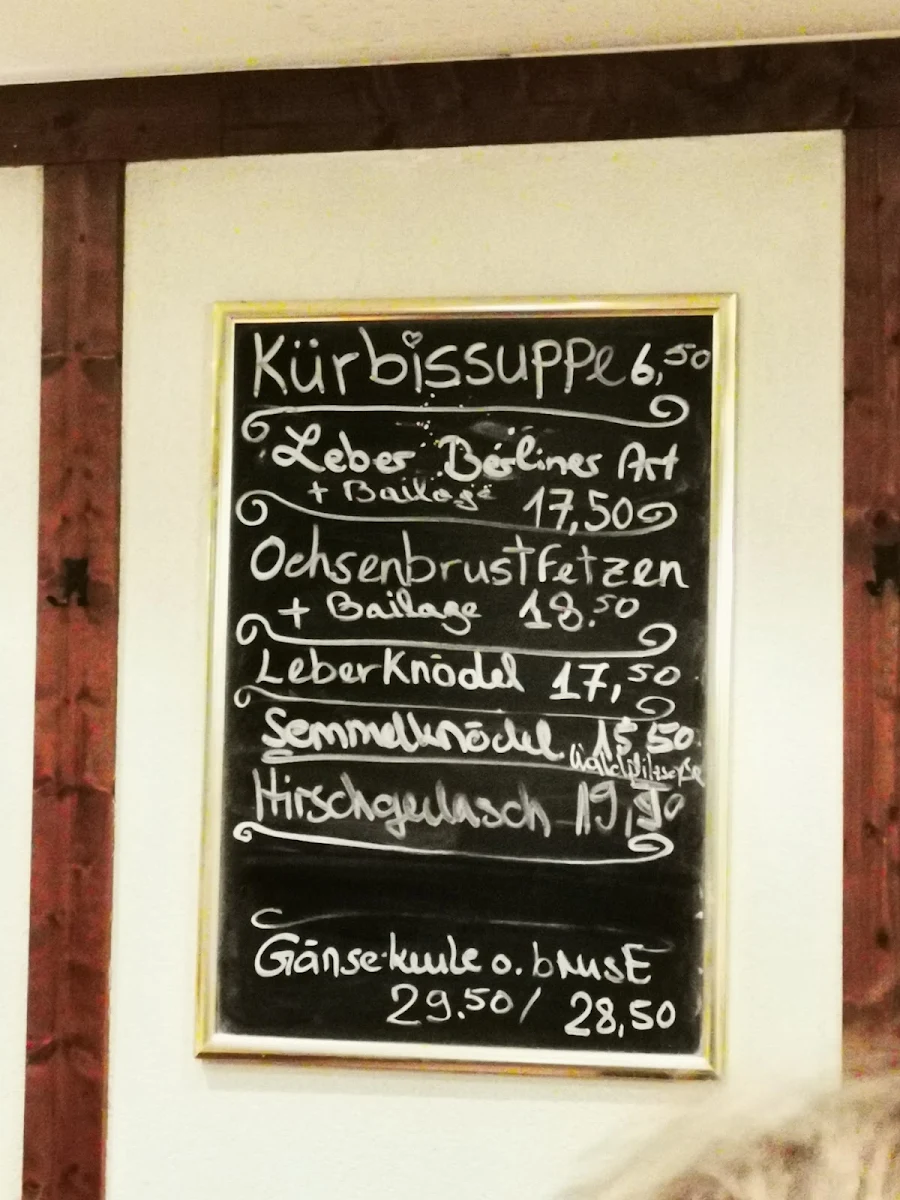 Kürbissuppe 6,50
Leber Berliner Art
+ Bailage 17,50
Ochsenbrustfetzen
+ Bailage 18.50
Leberknödel 17,50
Semmelknödel 15,50
Waldpilzsoße
Hirschgulasch 19,50
Gänsekeule o. brusE
29.50/ 28,50